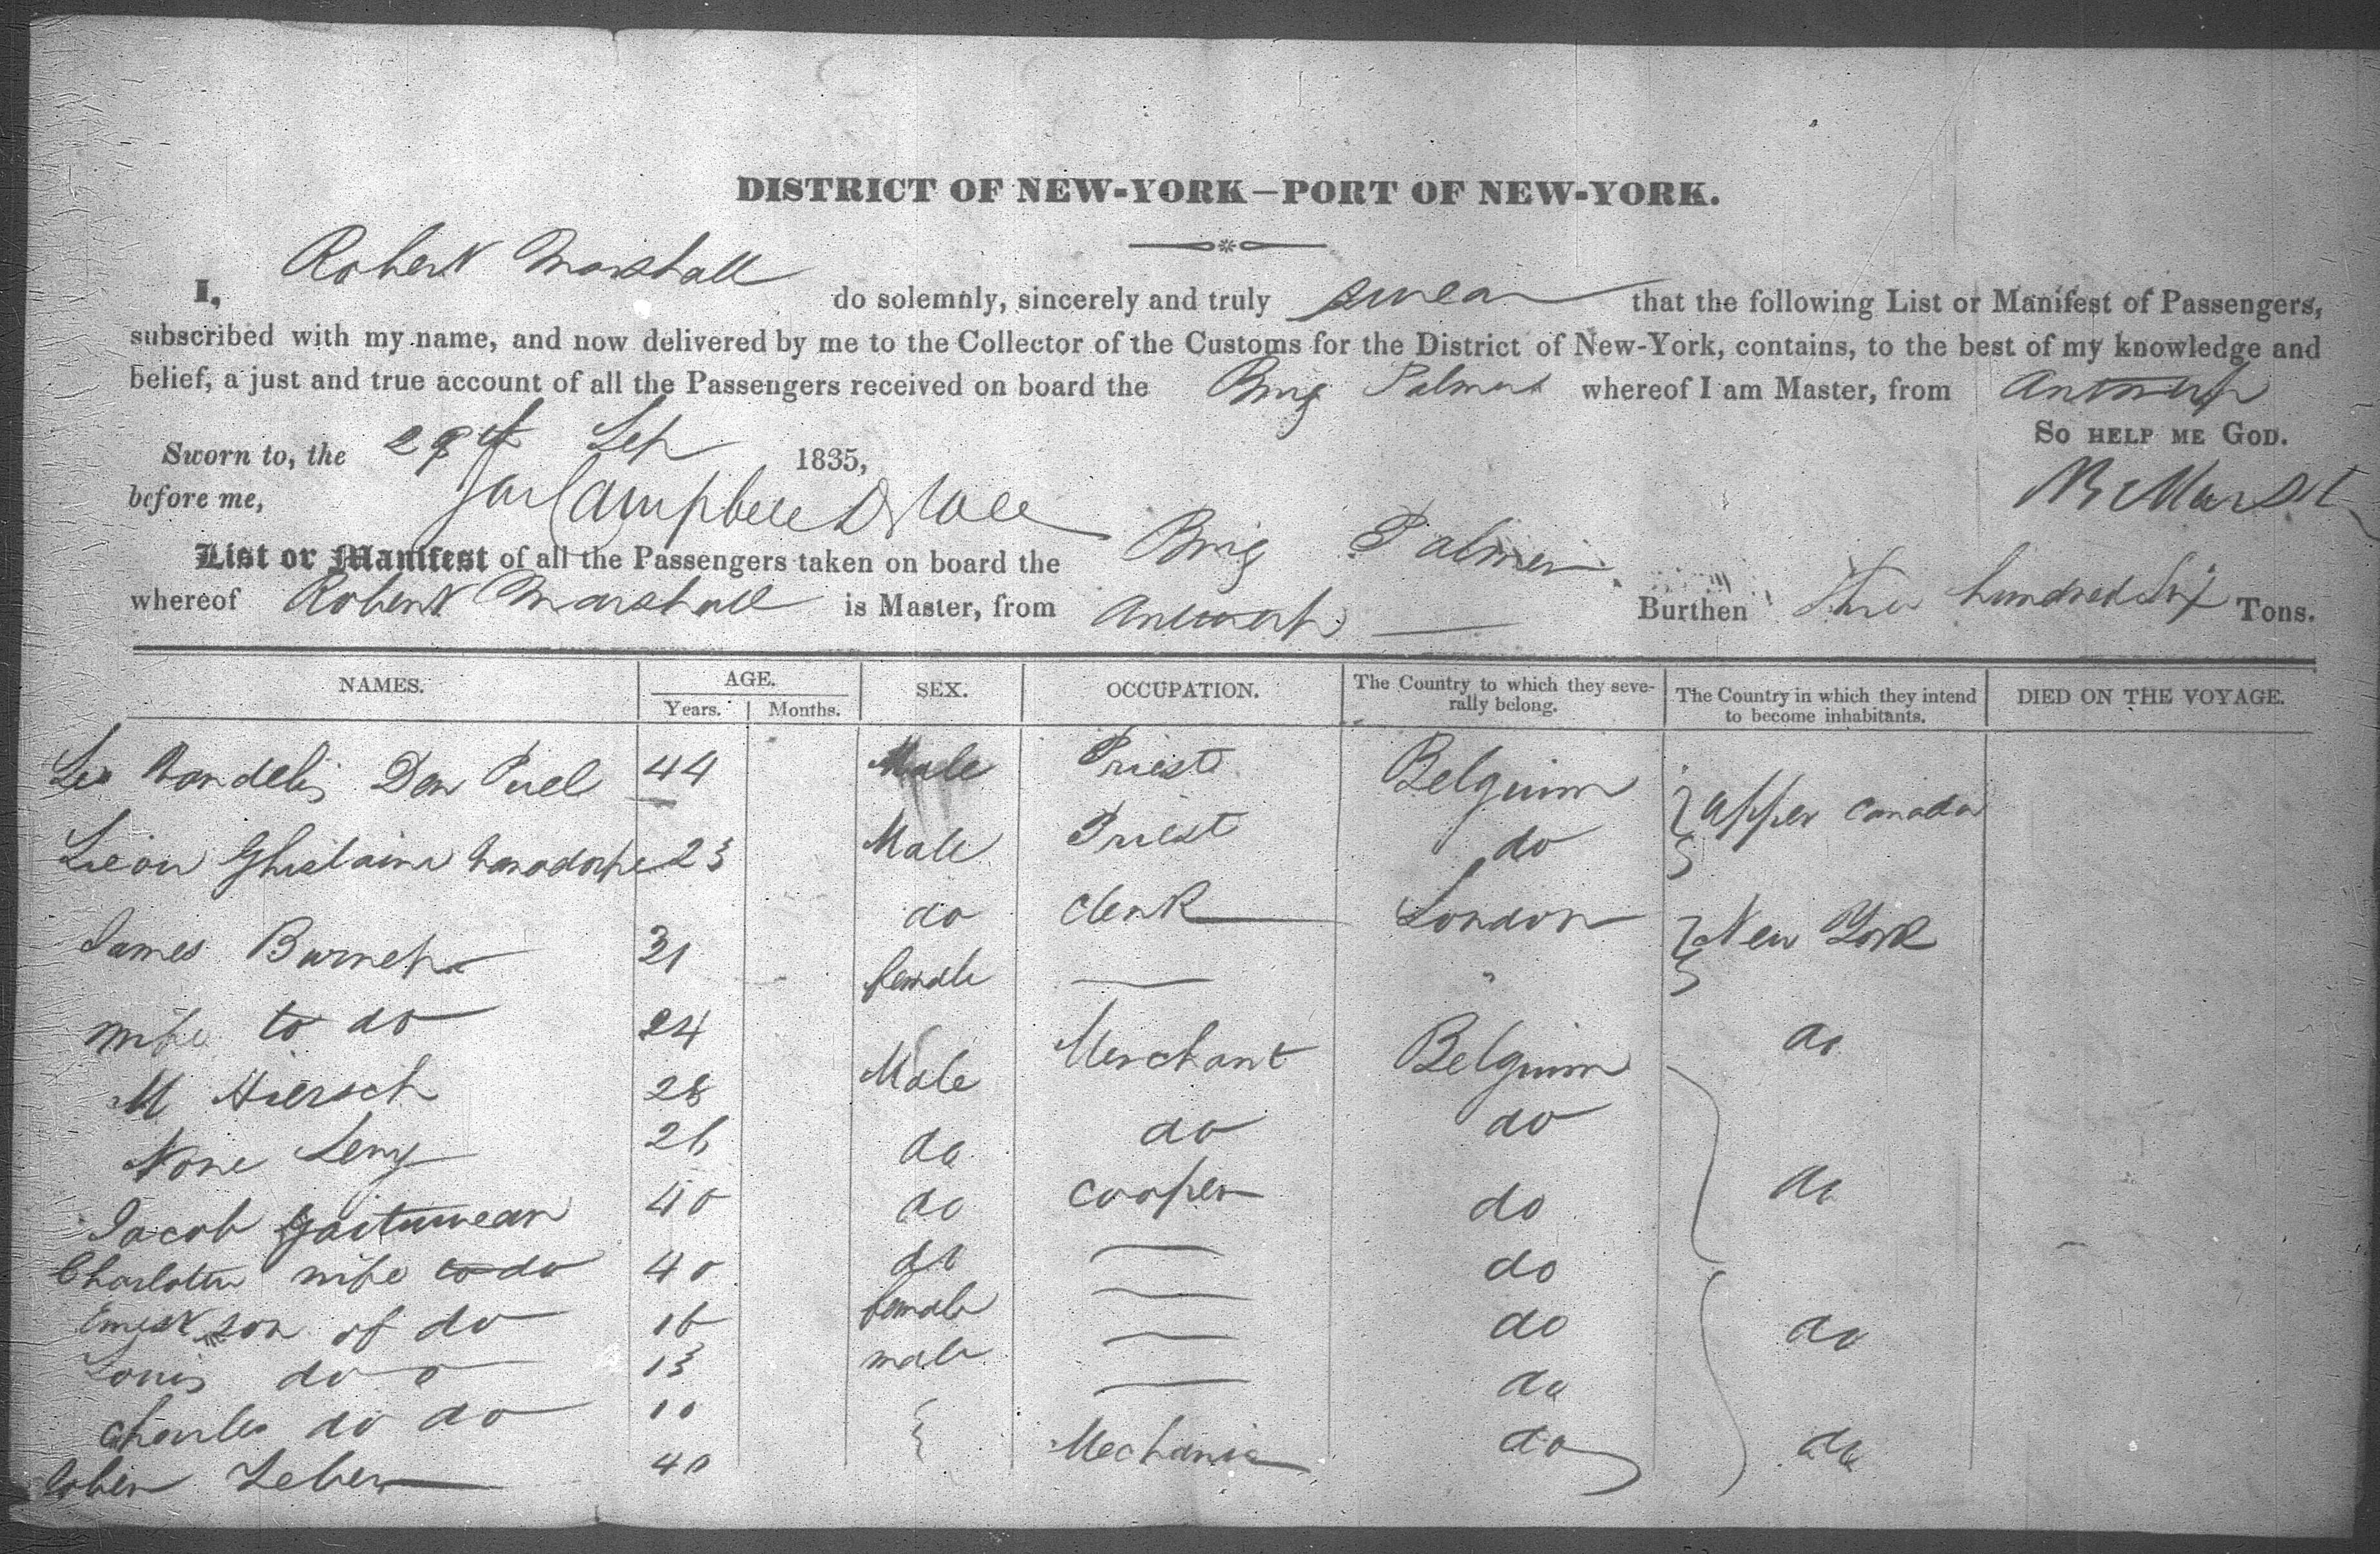 DISTRICT OF NEW-YORK—PORT OF NEW-YORK.
I, Robert Marshall do solemnly, sincerely and truly swear that the following List or Manifest of Passengers,
subscribed with my name, and now delivered by me to the Collector of the Customs for the District of New-York, contains, to the best of my knowledge and
belief, a just and true account of all the Passengers received on board the Brig Palmer whereof I am Master, from Antwerp
So help me God.
Sworn to, the 29th Sep 1835,
before me, Campbell
R Marsh
List or Manifest of all the Passengers taken on board the Brig Palmer
whereof Robert Marshall is Master, from Antwerp Burthen Three hundred Six Tons.
NAMES. AGE. SEX. OCCUPATION. The Country to which they severally belong. The Country in which they intend to become inhabitants. DIED ON THE VOYAGE.
Years. Months.
44 Male Priest Belguim upper Canada
Leon Ghislaine 23 Male Priest do
James Burnet 31 do Clerk London New York
wife to do 24 female — "
M Hiersch 28 Male Merchant Belguim do
None 26 do do do
Jacob 40 do Cooper do do
Charlotte wife to do 40 do — do
son of do 16 female — do do
Louis do o 13 male — do
Charles do do 10 — do
40 Mechanic do do